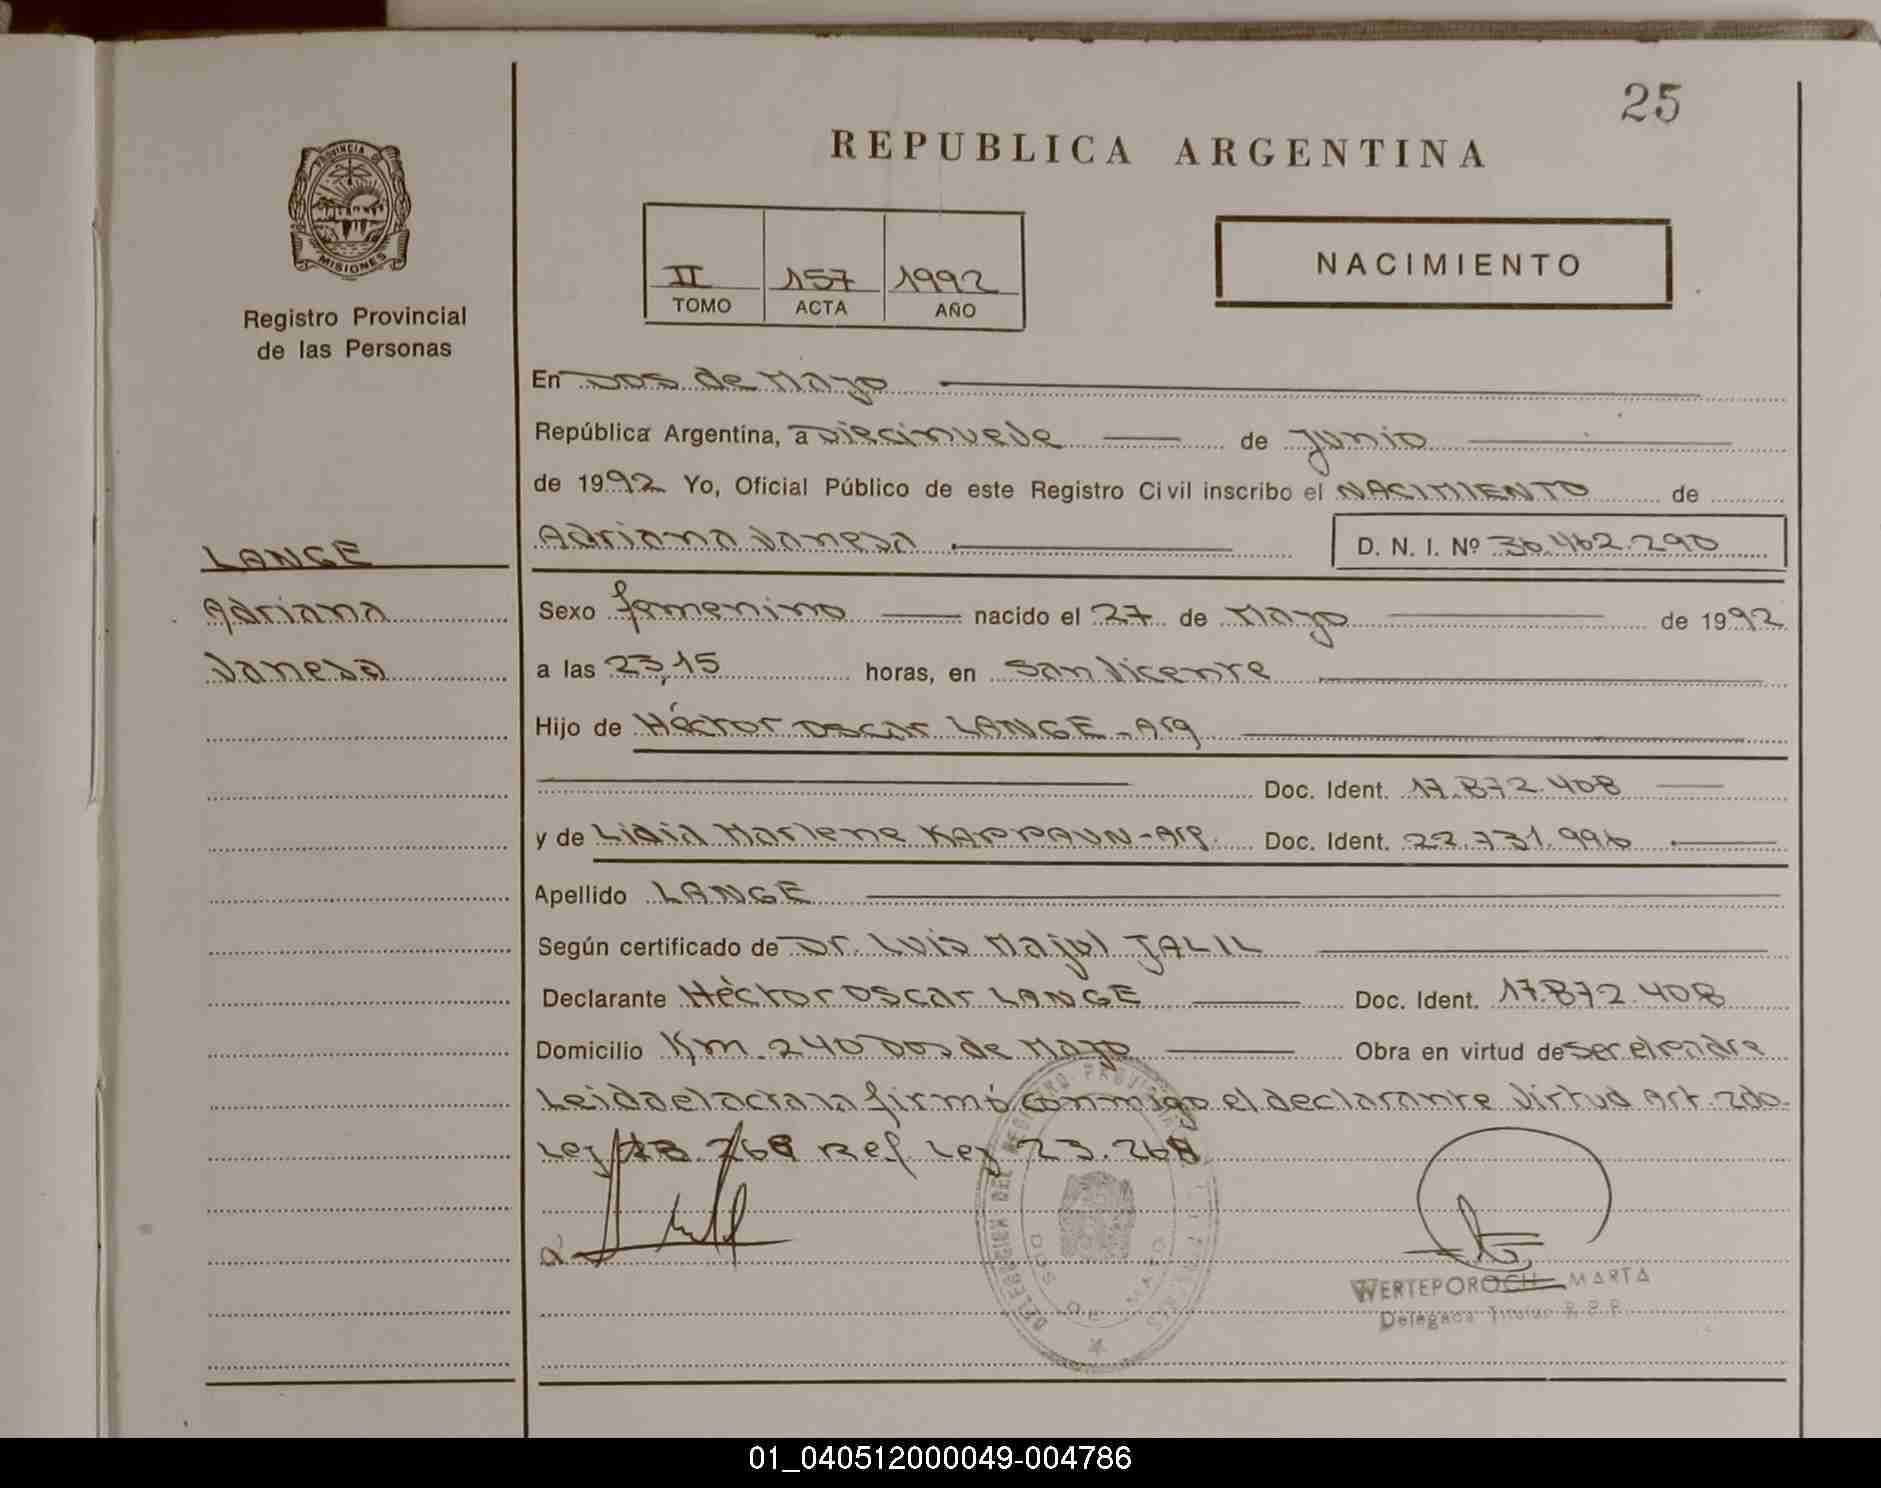 25
REPUBLICA ARGENTINA
PROVINCIA DE
MISIONES
Registro Provincial
de las Personas
II 157 1992
TOMO ACTA AÑO
NACIMIENTO
En Dos de Mayo
República Argentina, a Diecinueve de Junio
de 1992 Yo, Oficial Público de este Registro Civil inscribo el NACIMIENTO de
Adriana Vanesa D. N. I. Nº 36.462.290
LANGE
Adriana
Vanesa
Sexo femenino nacido el 27 de Mayo de 1992
a las 23,15 horas, en San Vicente
Hijo de Héctor Oscar LANGE - Arg
Doc. Ident. 17.872.408
y de Lidia Marlene KAPPAUN - Arg. Doc. Ident. 22.731.996
Apellido LANGE
Según certificado de Dr. Luis Majul JALIL
Declarante Héctor Oscar LANGE Doc. Ident. 17.872.408
Domicilio Km. 240 Dos de Mayo Obra en virtud de ser el padre
Leida el acta la firmó conmigo el declarante Virtud Art. 2do.
Ley 18.268 Ref Ley 23.268
DOS DE MAYO
WERTEPOROCH MARTA
Delegada Titular R.P.P.
01_040512000049-004786